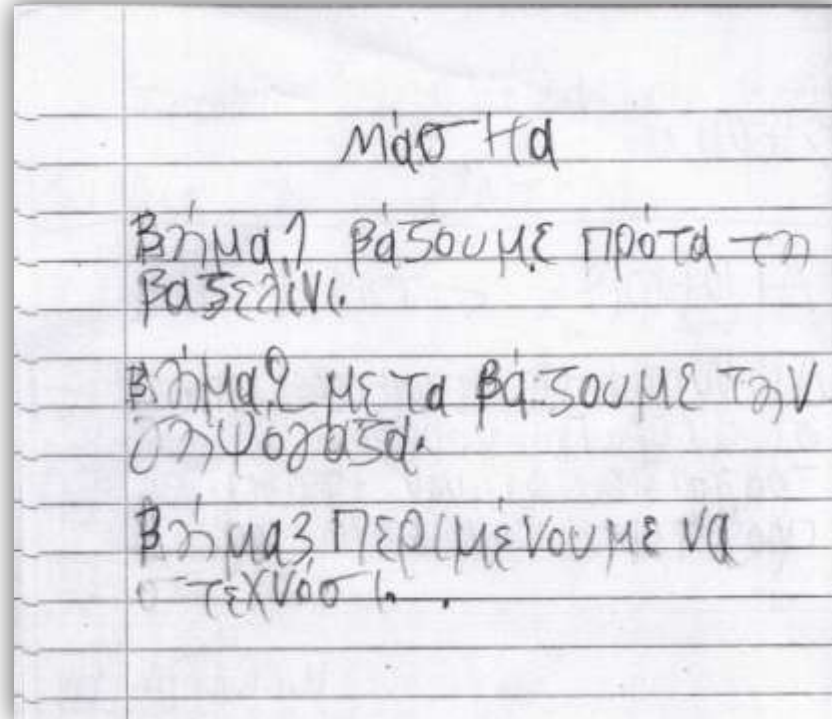 Μάσκα
Βλήμα.1 βάζουμε πρότα τη
βαζελίνι.
Βλήμα.2 με τα βάζουμε την
γληψόγαζα.
Βλήμα3 Περιμένουμε να
στεχνόσι..